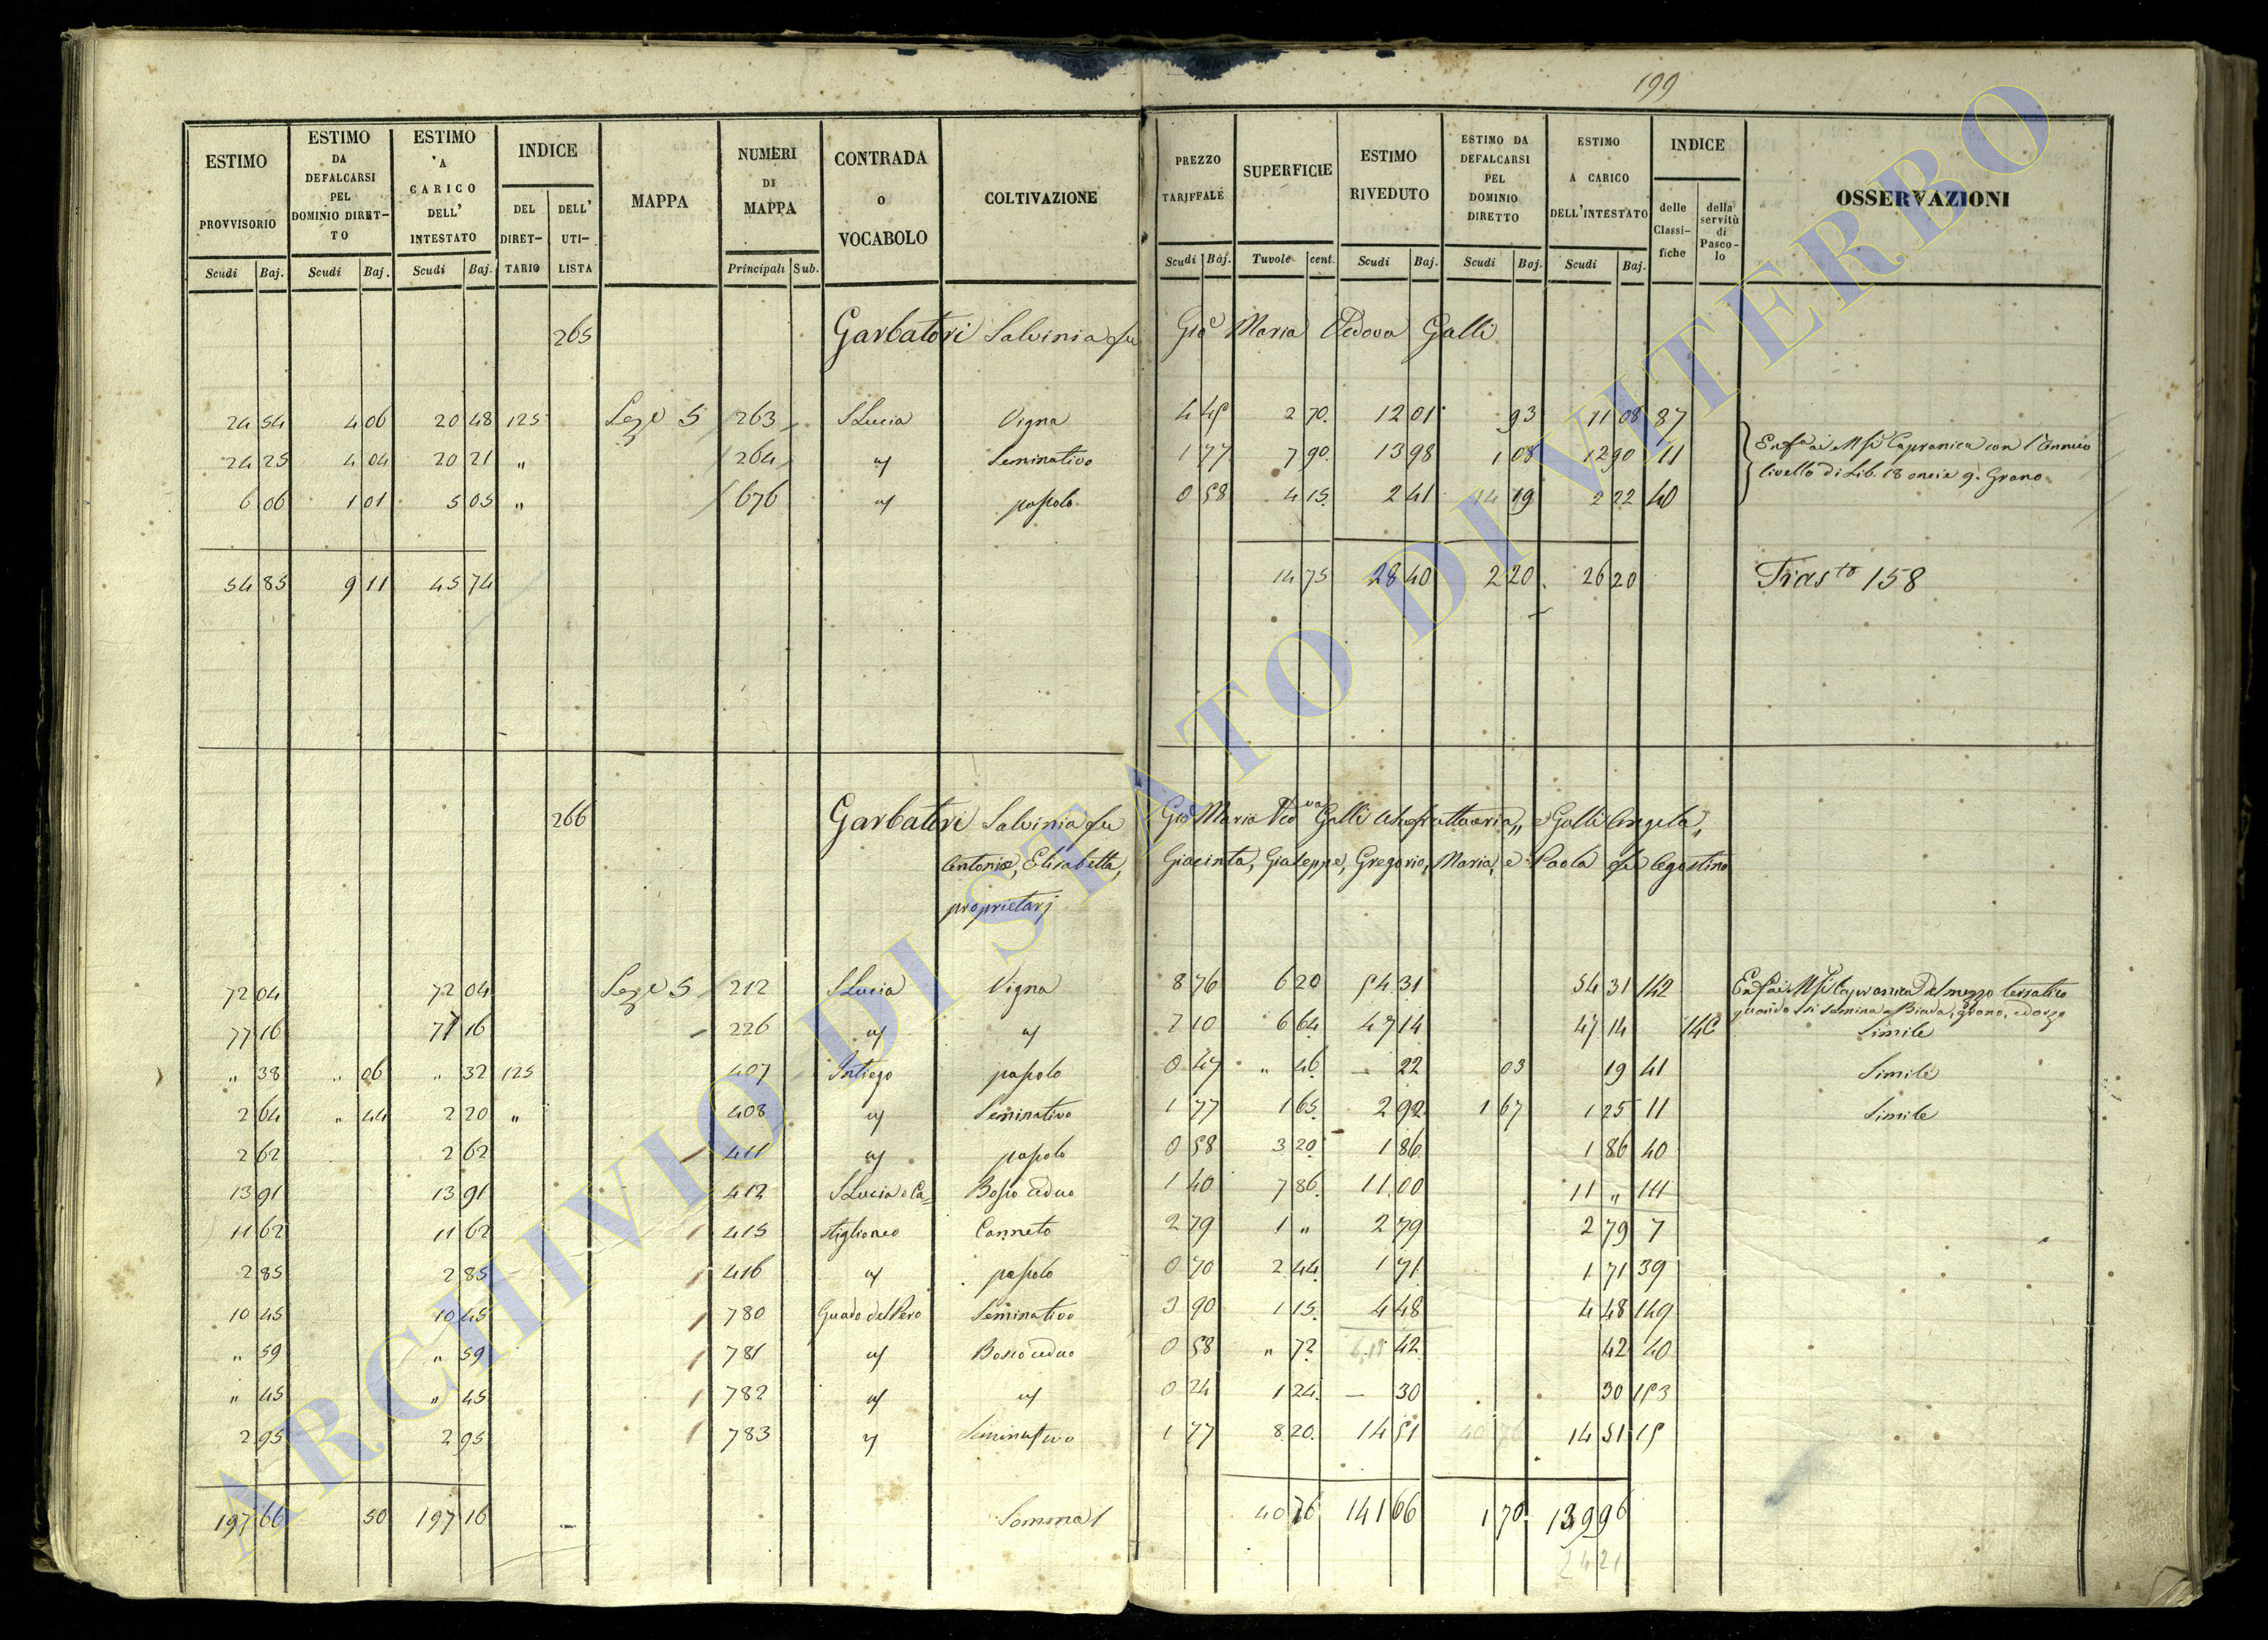 199
ESTIMO PROVVISORIO | ESTIMO DA DEFALCARSI PEL DOMINIO DIRETTO | ESTIMO A CARICO DELL' INTESTATO | INDICE DEL DIRETTARIO | DELL' UTILISTA | MAPPA | NUMERI DI MAPPA | CONTRADA o VOCABOLO | COLTIVAZIONE | PREZZO TARIFFALE | SUPERFICIE | ESTIMO RIVEDUTO | ESTIMO DA DEFALCARSI PEL DOMINIO DIRETTO | ESTIMO A CARICO DELL'INTESTATO | INDICE delle Classifiche | della servitù di Pascolo | OSSERVAZIONI
Scudi Baj. | Scudi Baj. | Scudi Baj. | Principali Sub. | Scudi Baj. | Tavole cent. | Scudi Baj. | Scudi Baj. | Scudi Baj.
265 Garbatori Salvinia fu Gio Maria Vedova Galli
24 54 | 4 06 | 20 48 | 125 | Seze 5 | 263 | S Lucia | Vigna | 4 45 | 2 70 | 12 01 | 93 | 11 08 | 87
24 25 | 4 04 | 20 21 | " | 264 | " | Seminativo | 1 77 | 7 90 | 13 98 | 1 08 | 12 90 | 11 | Capranica con l'annuo
6 06 | 1 01 | 5 05 | " | 676 | " | pascolo | 0 58 | 4 15 | 2 41 | 19 | 2 22 | 40 | livello di Lib. 18 oncie 9. Grano
54 85 | 9 11 | 45 74 | 14 75 | 28 40 | 2 20 | 26 20 | Trasto 158
266 Garbatori Salvinia fu Gio Maria Ved va Galli Usufruttuaria, e Galli Angela,
Antonio, Elisabetta, Giacinta, Giuseppe, Gregorio, Maria, e Paola fu Agostino
proprietarj
72 04 | 72 04 | Seze 5 | 212 | S Lucia | Vigna | 8 76 | 6 20 | 54 31 | 54 31 | 142 | Capranica Del mezzo terratico
quando si semina a Biada, grano, ed orzo
77 16 | 77 16 | 226 | " | " | 7 10 | 6 64 | 47 14 | 47 14 | 14C | Simile
" 38 | " 06 | " 32 | 125 | 407 | Intiego | pascolo | 0 47 | " 46 | — 22 | 03 | 19 | 41 | Simile
2 64 | " 44 | 2 20 | " | 408 | " | Seminativo | 1 77 | 1 65 | 2 92 | 1 67 | 1 25 | 11 | Simile
2 62 | 2 62 | 411 | " | pascolo | 0 58 | 3 20 | 1 86 | 1 86 | 40
13 91 | 13 91 | 412 | S Lucia o Ca= | Bosco ceduo | 1 40 | 7 86 | 11 00 | 11 " | 141
11 62 | 11 62 | 415 | stiglioneo | Canneto | 2 79 | 1 " | 2 79 | 2 79 | 7
2 85 | 2 85 | 416 | " | pascolo | 0 70 | 2 44 | 1 71 | 1 71 | 39
10 45 | 10 45 | 780 | Guado del Pero | Seminativo | 3 90 | 1 15 | 4 48 | 4 48 | 149
" 59 | " 59 | 781 | " | Bosco ceduo | 0 58 | " 72 | 42 | 42 | 40
" 45 | " 45 | 782 | " | " | 0 24 | 1 24 | — 30 | 30 | 153
2 95 | 2 95 | 783 | " | Seminativo | 1 77 | 8 20 | 14 51 | 14 51 | 15
197 66 | 50 | 197 16 | Somma | 40 76 | 141 66 | 1 70 | 139 96
24 21
ARCHIVIO DI STATO DI VITERBO